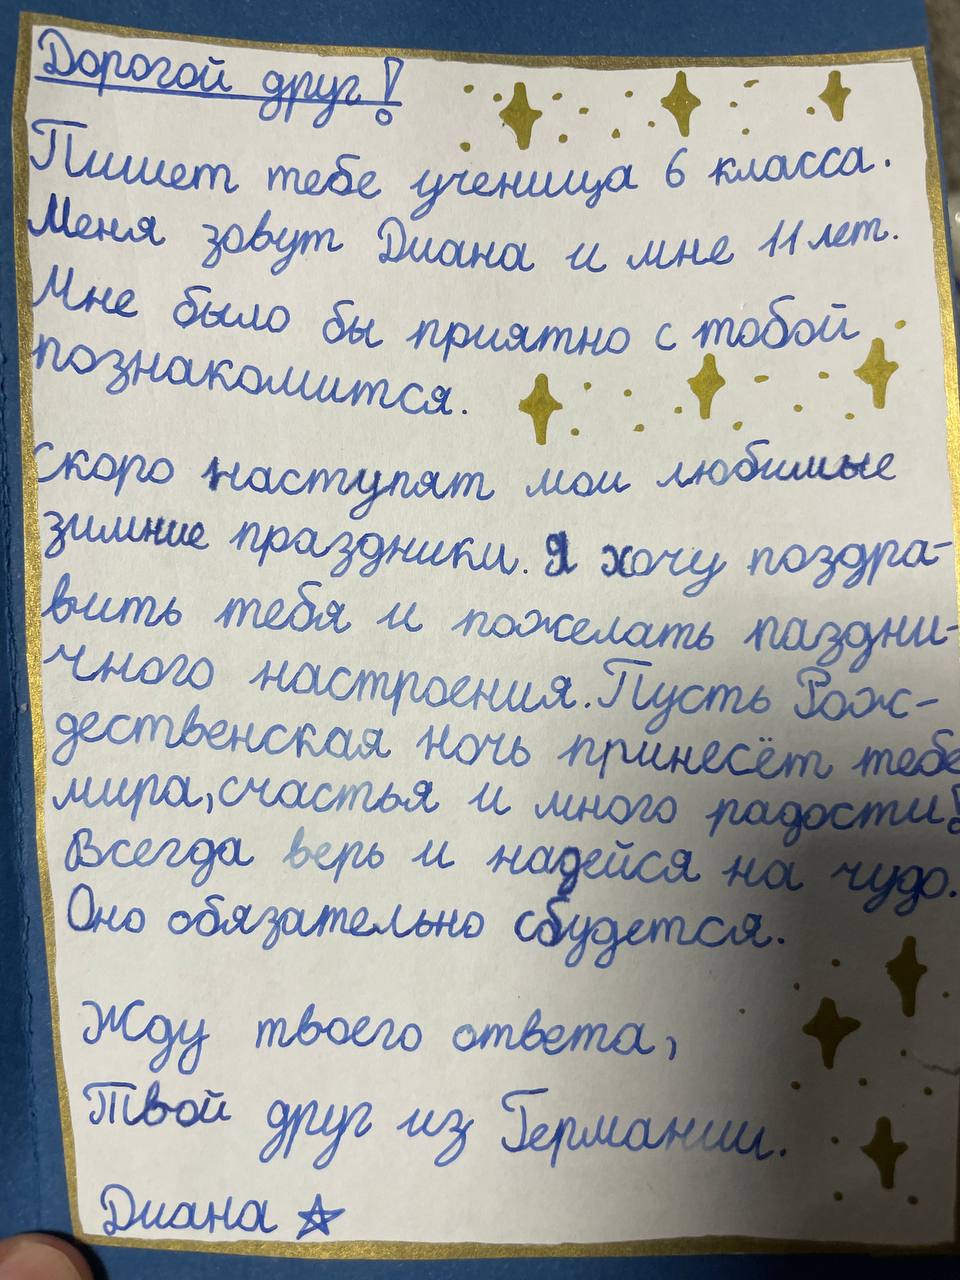 Дорогой друг!
Пишет тебе ученица 6 класса.
Меня зовут Диана и мне 11 лет.
Мне было бы приятно с тобой
познакомится.
Скоро наступят мои любимые
зимние праздники. Я хочу поздра-
вить тебя и пожелать паздни-
чного настроения. Пусть Рож-
дественская ночь принесёт тебе
мира, счастья и много радости!
Всегда верь и надейся на чудо.
Оно обязательно сбудется.
Жду твоего ответа,
Твой друг из Германии.
Диана